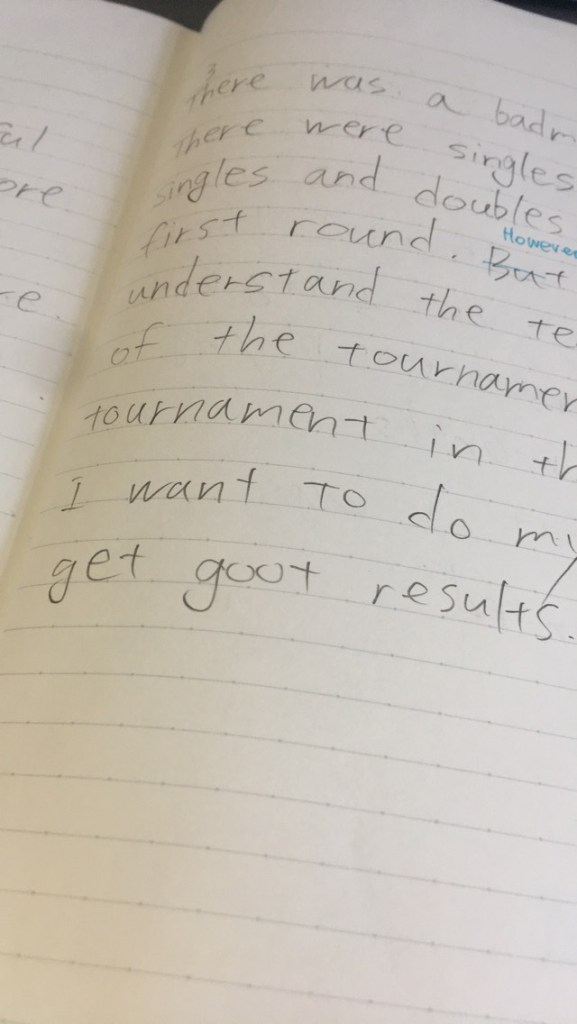 ful
ore
re.
There was a badm
There were singles
singles and doubles
first round. But
However
understand the te
of the tournamen
tournament in th
I want to do my
get goot results.